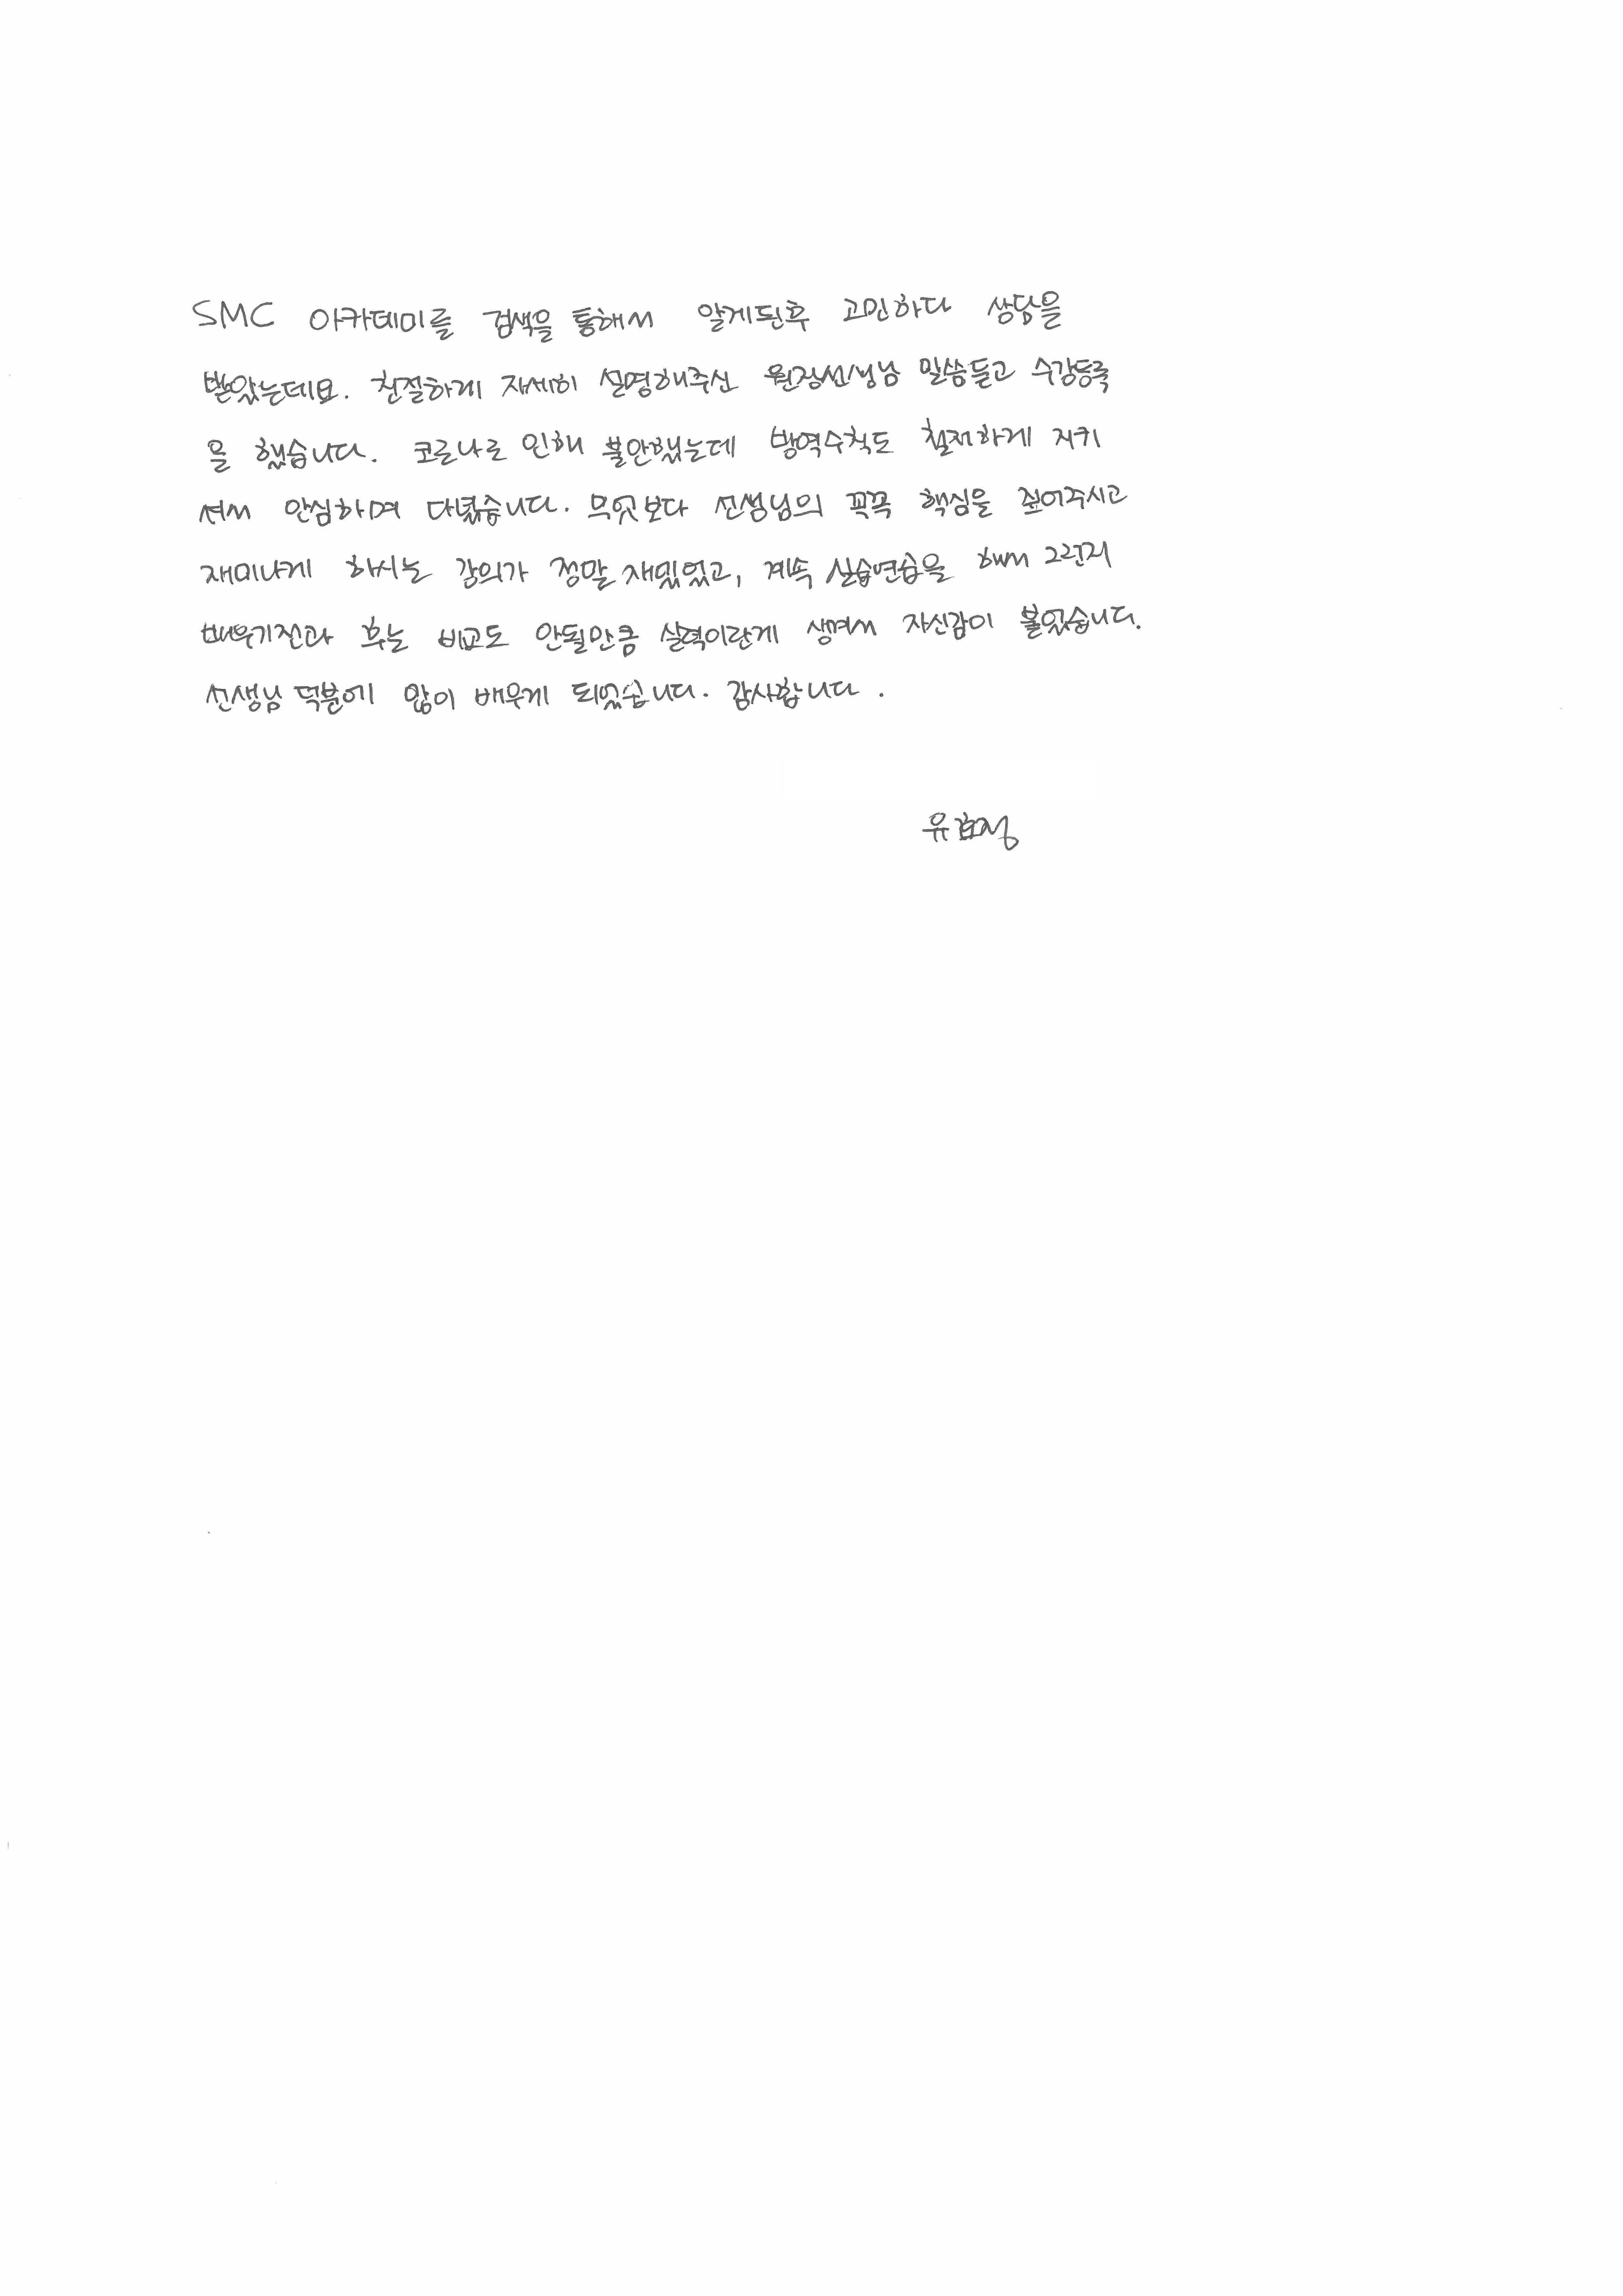 SMC 아카데미를 검색을 통해서 알게된후 고민하다 상담을
받았는데요. 친절하게 자세히 설명해주신 원장선생님 말씀듣고 수강등록
을 했습니다. 코로나로 인해 불안했는데 방역수칙도 철저하게 지키
셔서 안심하며 다녔습니다. 무엇보다 선생님의 꼭꼭 핵심을 짚어주시고
재미나게 하시는 강의가 정말 재밌었고, 계속 실습연습을 해서 그런지
배우기전과 후는 비교도 안될만큼 실력이란게 생겨서 자신감이 붙었습니다.
선생님 덕분에 많이 배우게 되었습니다. 감사합니다.